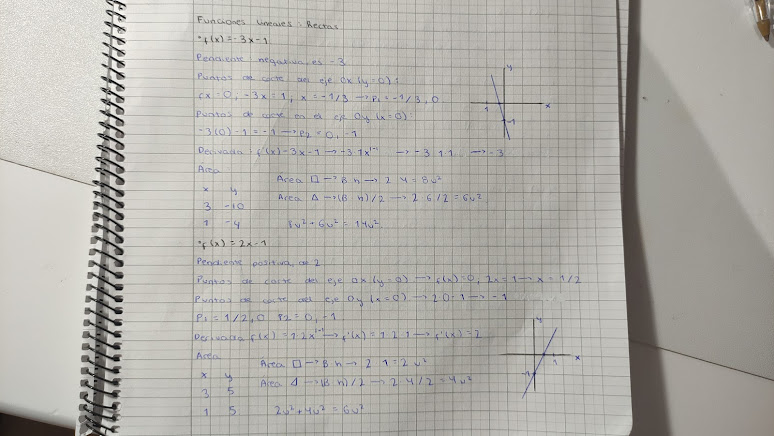 Funciones lineales: Rectas
*f(x)=-3x-1
Pendiente negativa, es -3
Puntos de corte del eje Ox (y=0):
fx=0, -3x=1, x=-1/3 → P1=-1/3, 0
Puntos de corte en el eje Oy (x=0):
-3(0)-1=-1 → P2=0, -1
Derivada: f'(x)-3x-1 → -3·1x¹⁻¹ → -3·1·1 → -3
Área
x y
3 -10
1 -4
Área □ → B·h → 2·4=8u²
Área Δ → (B·h)/2 → 2·6/2=6u²
8u²+6u²=14u²
*f(x)=2x-1
Pendiente positiva de 2
Puntos de corte del eje Ox (y=0) → f(x)=0, 2x=1 → x=1/2
Puntos de corte del eje Oy (x=0) → 2·0-1 → -1
P1=1/2, 0 P2=0, -1
Derivada f(x)=1·2x¹⁻¹ → f'(x)=1·2·1 → f'(x)=2
Área
x y
3 5
1 5
Área □ → B·h → 2·1=2u²
Área Δ → (B·h)/2 → 2·4/2=4u²
2u²+4u²=6u²
y
x
1
-1
y
x
1
-1